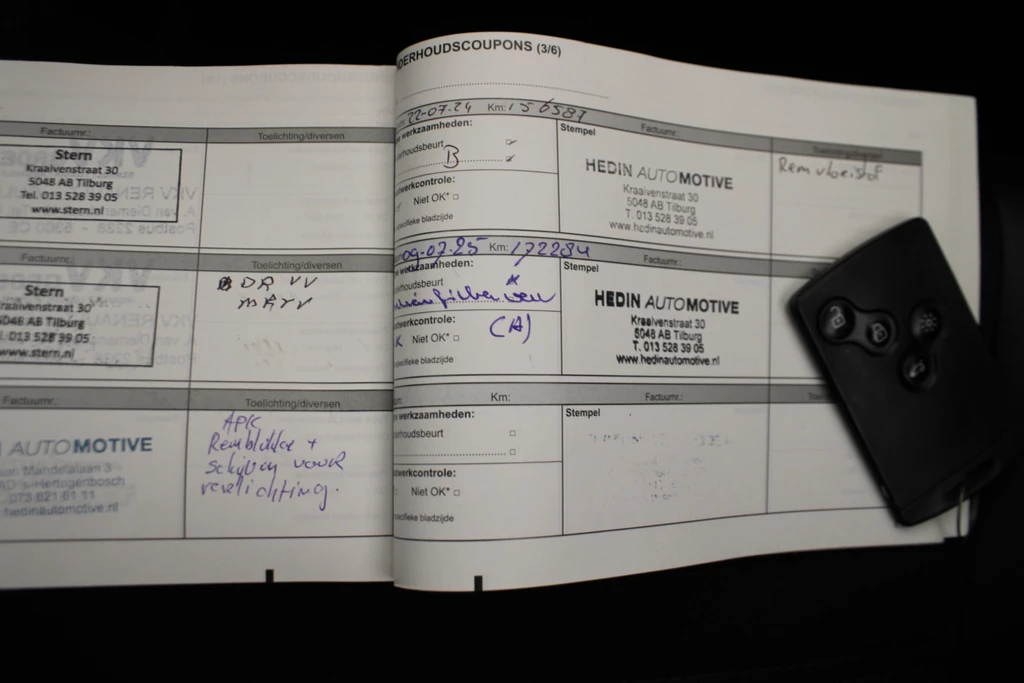 Factuurnr.:
Toelichting/diversen
Stern
Kraaivenstraat 30
5048 AB Tilburg
Tel. 013 528 39 05
www.stern.nl
Factuurnr.:
Toelichting/diversen
Stern
raaivenstraat 30
5048 AB Tilburg
. 013 528 39 05
www.stern.nl
Factuurnr.:
Toelichting/diversen
AUTOMOTIVE
Mandelalaan 3
's-Hertogenbosch
073 621 61 11
hedinautomotive.nl
APK
Remblokke +
schijven voor
verlichting.
DERHOUDSCOUPONS (3/6)
22-07-24 Km: 156587
werkzaamheden:
erhoudsbeurt
B
werkcontrole:
Niet OK*
pecifieke bladzijde
Stempel
Factuurnr.:
HEDIN AUTOMOTIVE
Kraaivenstraat 30
5048 AB Tilburg
T. 013 528 39 05
www.hedinautomotive.nl
Remvloeistof
09-07-25 Km: 172284
werkzaamheden:
rhoudsbeurt
werkcontrole:
Niet OK*
(A)
pecifieke bladzijde
Stempel
Factuurnr.:
HEDIN AUTOMOTIVE
Kraaivenstraat 30
5048 AB Tilburg
T. 013 528 39 05
www.hedinautomotive.nl
Km:
werkzaamheden:
erhoudsbeurt
werkcontrole:
Niet OK*
pecifieke bladzijde
Stempel
Factuurnr.: